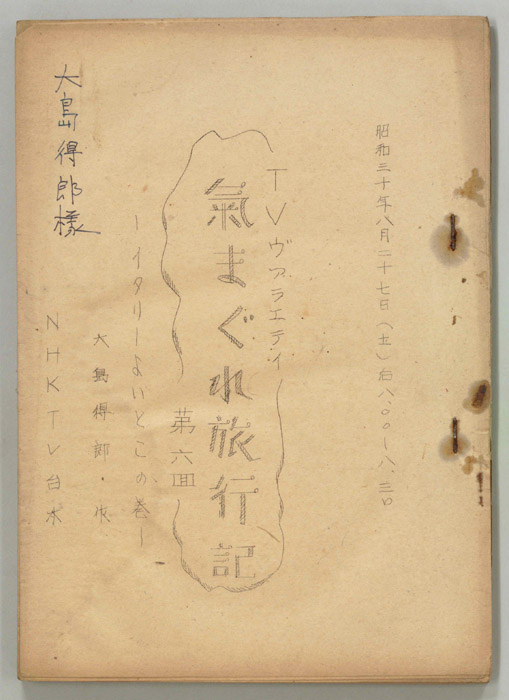 昭和三十年八月二十七日(土)后八.〇〇―八.三〇
TVヴァラエティ
氣まぐれ旅行記
第六回
―イタリーよいとこの巻―
大島得郎・作
NHKTV台本
大島得郎様